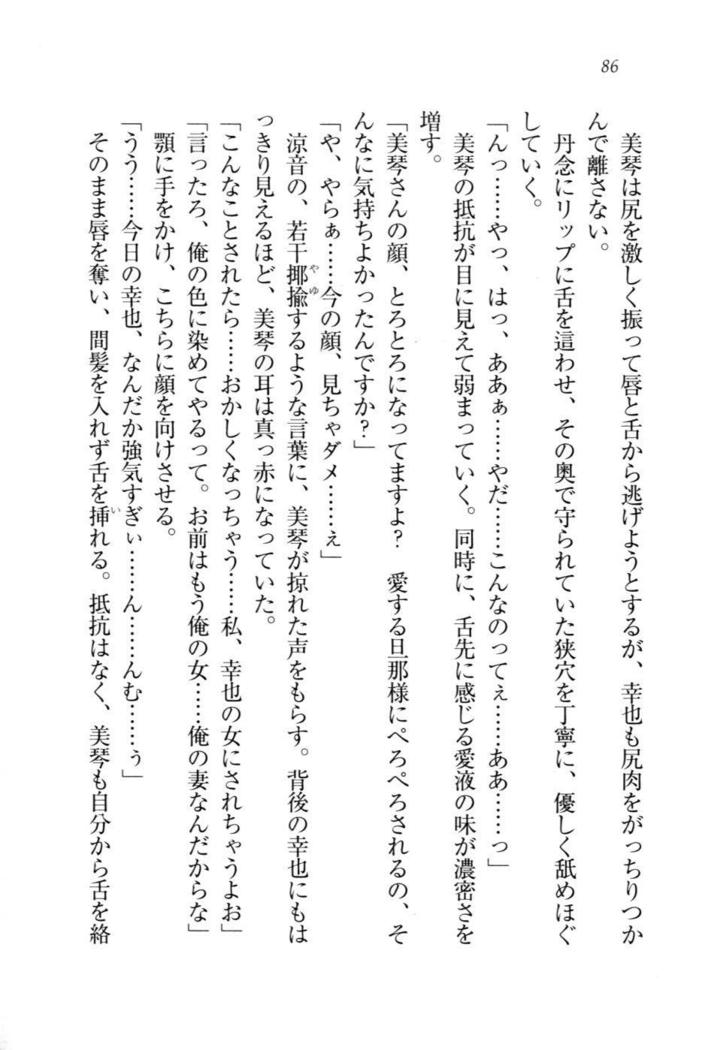 86
美琴は尻を激しく振って唇と舌から逃げようとするが、幸也も尻肉をがっちりつか
んで離さない。
丹念にリップに舌を這わせ、その奥で守られていた狭穴を丁寧に、優しく舐めほぐ
していく。
「んっ……やっ、はっ、ああぁ……やだ……こんなのってぇ……ああ……っ」
美琴の抵抗が目に見えて弱まっていく。同時に、舌先に感じる愛液の味が濃密さを
増す。
「美琴さんの顔、とろとろになってますよ？　愛する旦那様にぺろぺろされるの、そ
んなに気持ちよかったんですか？」
「や、やらぁ……今の顔、見ちゃダメ……ぇ」
涼音の、若干揶揄するような言葉に、美琴が掠れた声をもらす。背後の幸也にもは
っきり見えるほど、美琴の耳は真っ赤になっていた。
「こんなことされたら……おかしくなっちゃう……私、幸也の女にされちゃうよお」
「言ったろ、俺の色に染めてやるって。お前はもう俺の女……俺の妻なんだからな」
顎に手をかけ、こちらに顔を向けさせる。
「うう……今日の幸也、なんだか強気すぎぃ……ん……んむ……ぅ」
そのまま唇を奪い、間髪を入れず舌を挿れる。抵抗はなく、美琴も自分から舌を絡